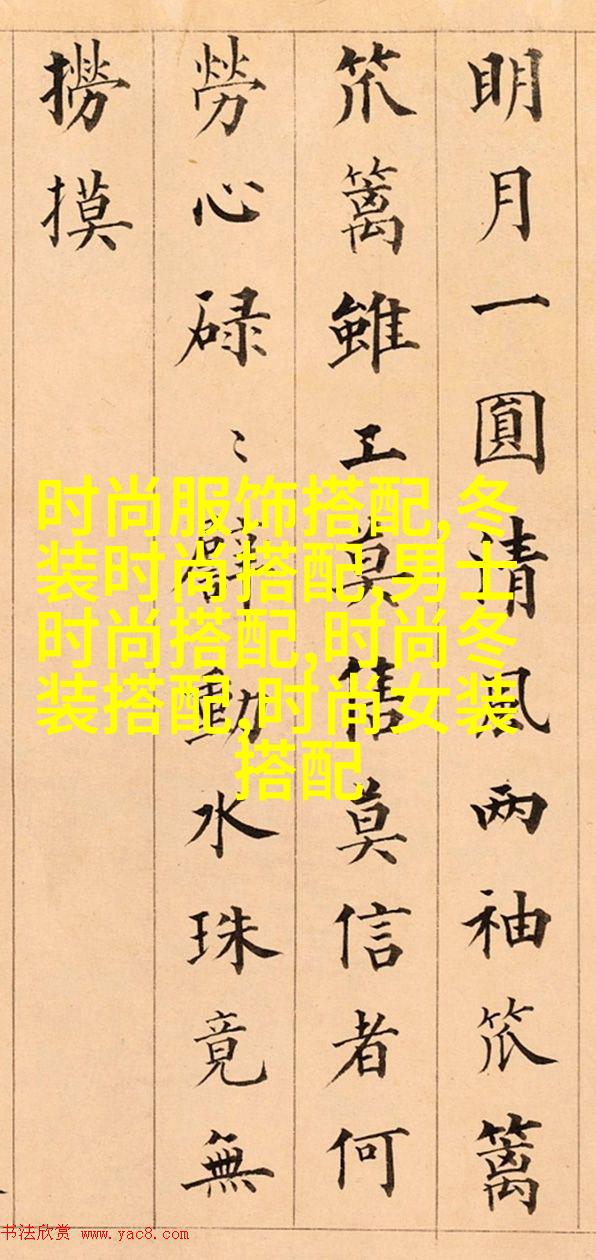 明月一圓清風两袖笊篱
笊篱雖工莫售莫信者何
勞心碌〻動水珠竟無
撈摸
时尚服饰搭配,冬
装时尚搭配,男士
时尚搭配,时尚冬
装搭配,时尚女装
搭配
书法欣赏 www.yac8.com